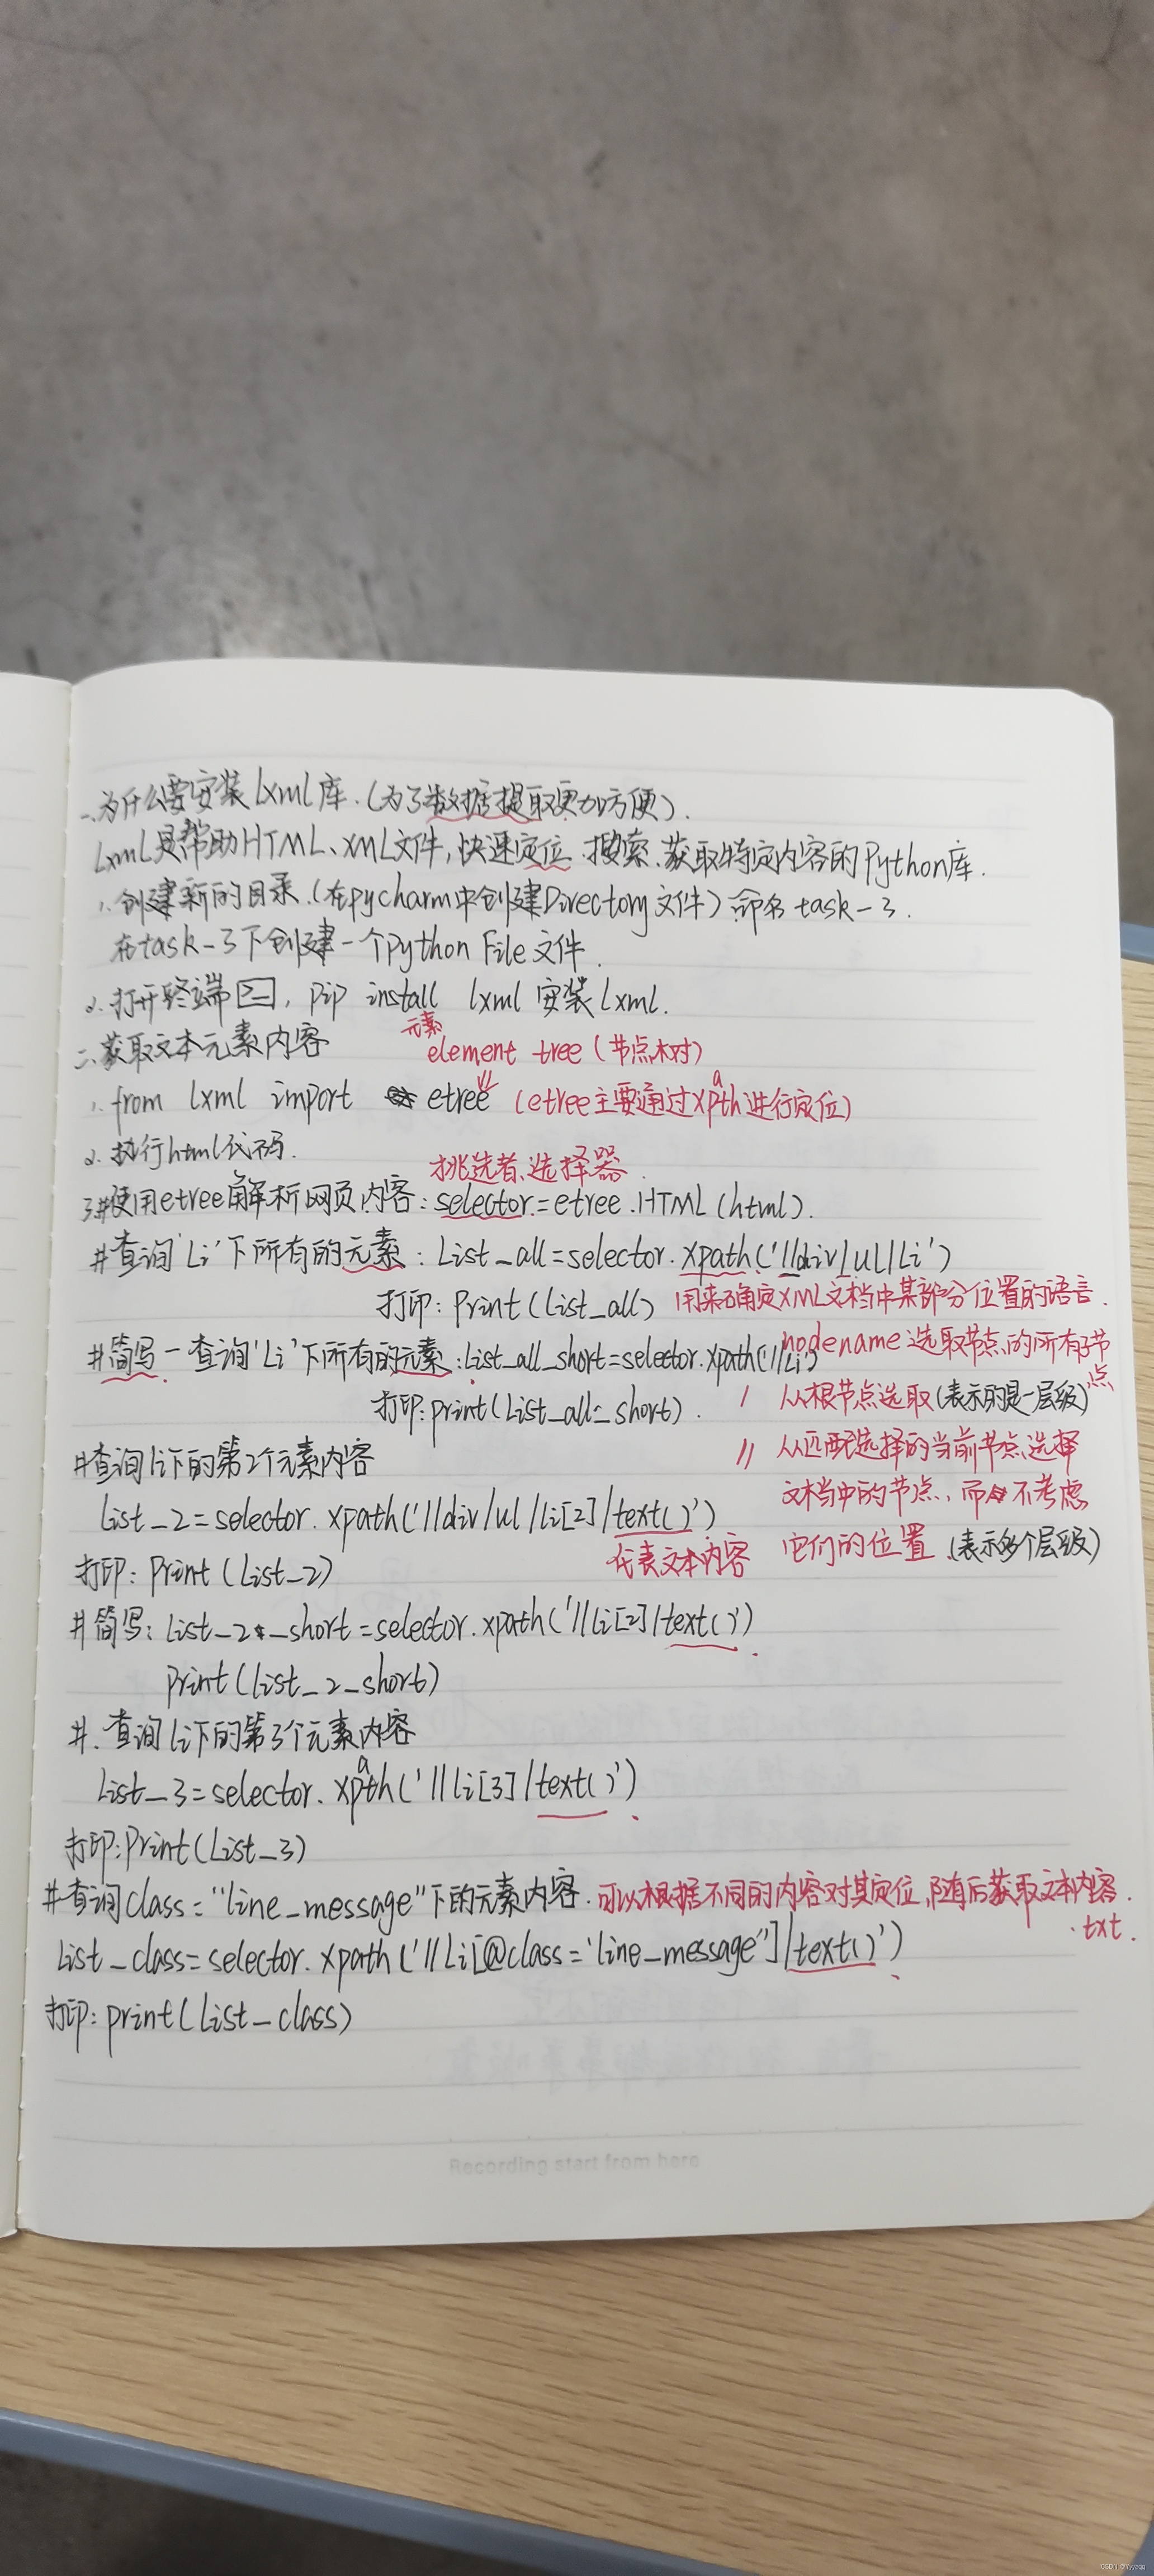 一、为什么要安装lxml库.(为了数据提取更加方便).
lxml是帮助HTML、XML文件,快速定位.搜索.获取特定内容的Python库.
1.创建新的目录.(在pycharm中创建Directory文件)命名task-3.
在task-3下创建一个python File文件.
2.打开终端, pip install lxml 安装lxml.
二、获取文本元素内容
元素
element tree (节点树)
1. from lxml import etree (etree主要通过xpath进行定位)
2.执行html代码.
挑选者、选择器.
3.#使用etree解析网页内容:selector=etree.HTML(html).
#查询'Li'下所有的元素:List_all=selector.xpath('//div/ul/Li')
打印: Print(List_all) 用来确定XML文档中某部分位置的语言.
#简写-查询'Li'下所有的元素:List_all_short=selector.xpath('//Li')
nodename 选取节点的所有子节点
打印:print(List_all_short).
/ 从根节点选取(表示的是一层级)
#查询li下的第2个元素内容
// 从匹配选择的当前节点选择
文档中的节点,而不考虑
它们的位置(表示多个层级)
List_2=selector.xpath('//div/ul/li[2]/text()')
代表文本内容
打印: Print(List_2)
#简写: List_2_short=selector.xpath('//li[2]/text()')
Print(List_2_short)
#.查询li下的第3个元素内容
List_3=selector.xpath('//li[3]/text()')
打印:Print(List_3)
#查询class="line_message"下的元素内容.可以根据不同的内容对其定位,随后获取文本内容.
.txt.
List_class=selector.xpath('//Li[@class='line_message"]/text()')
打印: print(List_class)
Recording start from here